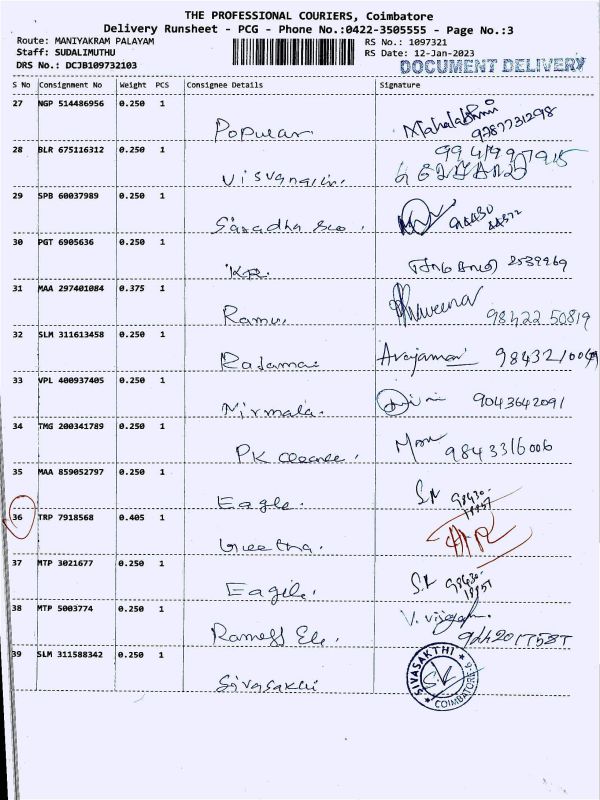 THE PROFESSIONAL COURIERS, Coimbatore
Delivery Runsheet - PCG - Phone No.:0422-3505555 - Page No.:3
Route: MANIYAKRAM PALAYAM
RS No.: 1097321
Staff: SUDALIMUTHU
RS Date: 12-Jan-2023
DRS No.: DCJB109732103
DOCUMENT DELIVERY
S No Consignment No Weight PCS Consignee Details Signature
27 NGP 514486956 0.250 1
Popular. Mahalakshmi
9787731298
28 BLR 675116312 0.250 1
9941997915
29 SPB 60037989 0.250 1
Saradha
30 PGT 6905636 0.250 1
KR. 2539969
31 MAA 297401084 0.375 1
Ramu. Praveena
98422 50819
32 SLM 311613458 0.250 1
Rajamani
33 VPL 400937405 0.250 1
Nirmala. 9043642091
34 TMG 200341789 0.250 1
PK 9843316006
35 MAA 859052797 0.250 1
Eagle.
36 TRP 7918568 0.405 1
Geetha.
37 MTP 3021677 0.250 1
Eagile.
38 MTP 5003774 0.250 1
Ramesh Ele.
39 SLM 311588342 0.250 1
Sivasakthi
SIVASAKTHI
COIMBATORE-6